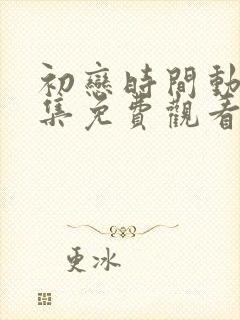 初戀時間動
集免費觀看
更冰